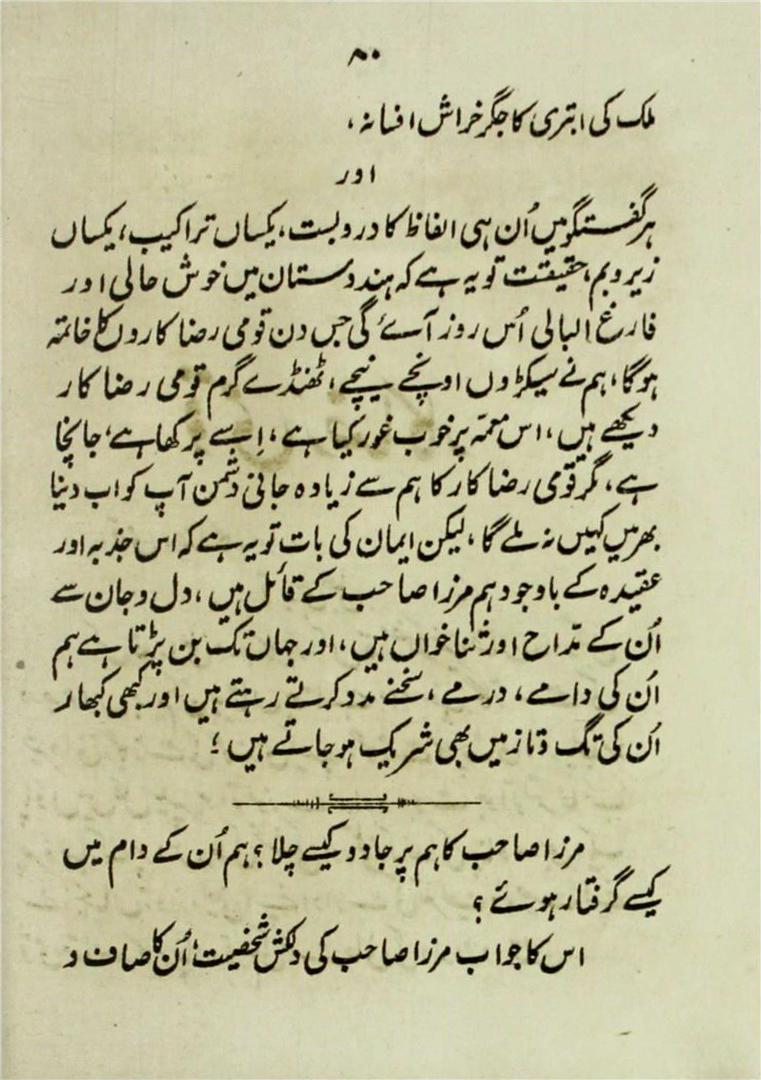 ۸۰
ملک کی ابتری کا جگر خراش افسانہ،
اور
ہر گفتگو میں اُن ہی الفاظ کا دروبست، یکساں تراکیب، یکساں
زیر و بم، حقیقت تو یہ ہے کہ ہندوستان میں خوش حالی اور
فارغ البالی اُس روز آئے گی جس دن قومی رضا کاروں کا خاتمہ
ہوگا، ہم نے سیکڑوں اونچے نیچے، ٹھنڈے گرم قومی رضا کار
دیکھے ہیں، اس معمّہ پر خوب غور کیا ہے، اِسے پرکھا ہے، جانچا
ہے، مگر قومی رضا کار کا ہم سے زیادہ جانی دشمن آپ کو اب دنیا
بھر میں کہیں نہ ملے گا، لیکن ایمان کی بات تو یہ ہے کہ اس جذبہ اور
عقیدہ کے باوجود ہم مرزا صاحب کے قائل ہیں، دل و جان سے
اُن کے مدّاح اور ثنا خواں ہیں، اور جہاں تک بن پڑتا ہے ہم
اُن کی دامے، درمے، سخنے مدد کرتے رہتے ہیں اور کبھی کبھار
اُن کی تگ و تاز میں بھی شریک ہو جاتے ہیں؛
مرزا صاحب کا ہم پر جادو کیسے چلا؟ ہم اُن کے دام میں
کیسے گرفتار ہوئے؟
اس کا جواب مرزا صاحب کی دلکش شخصیت، اُن کا صاف و